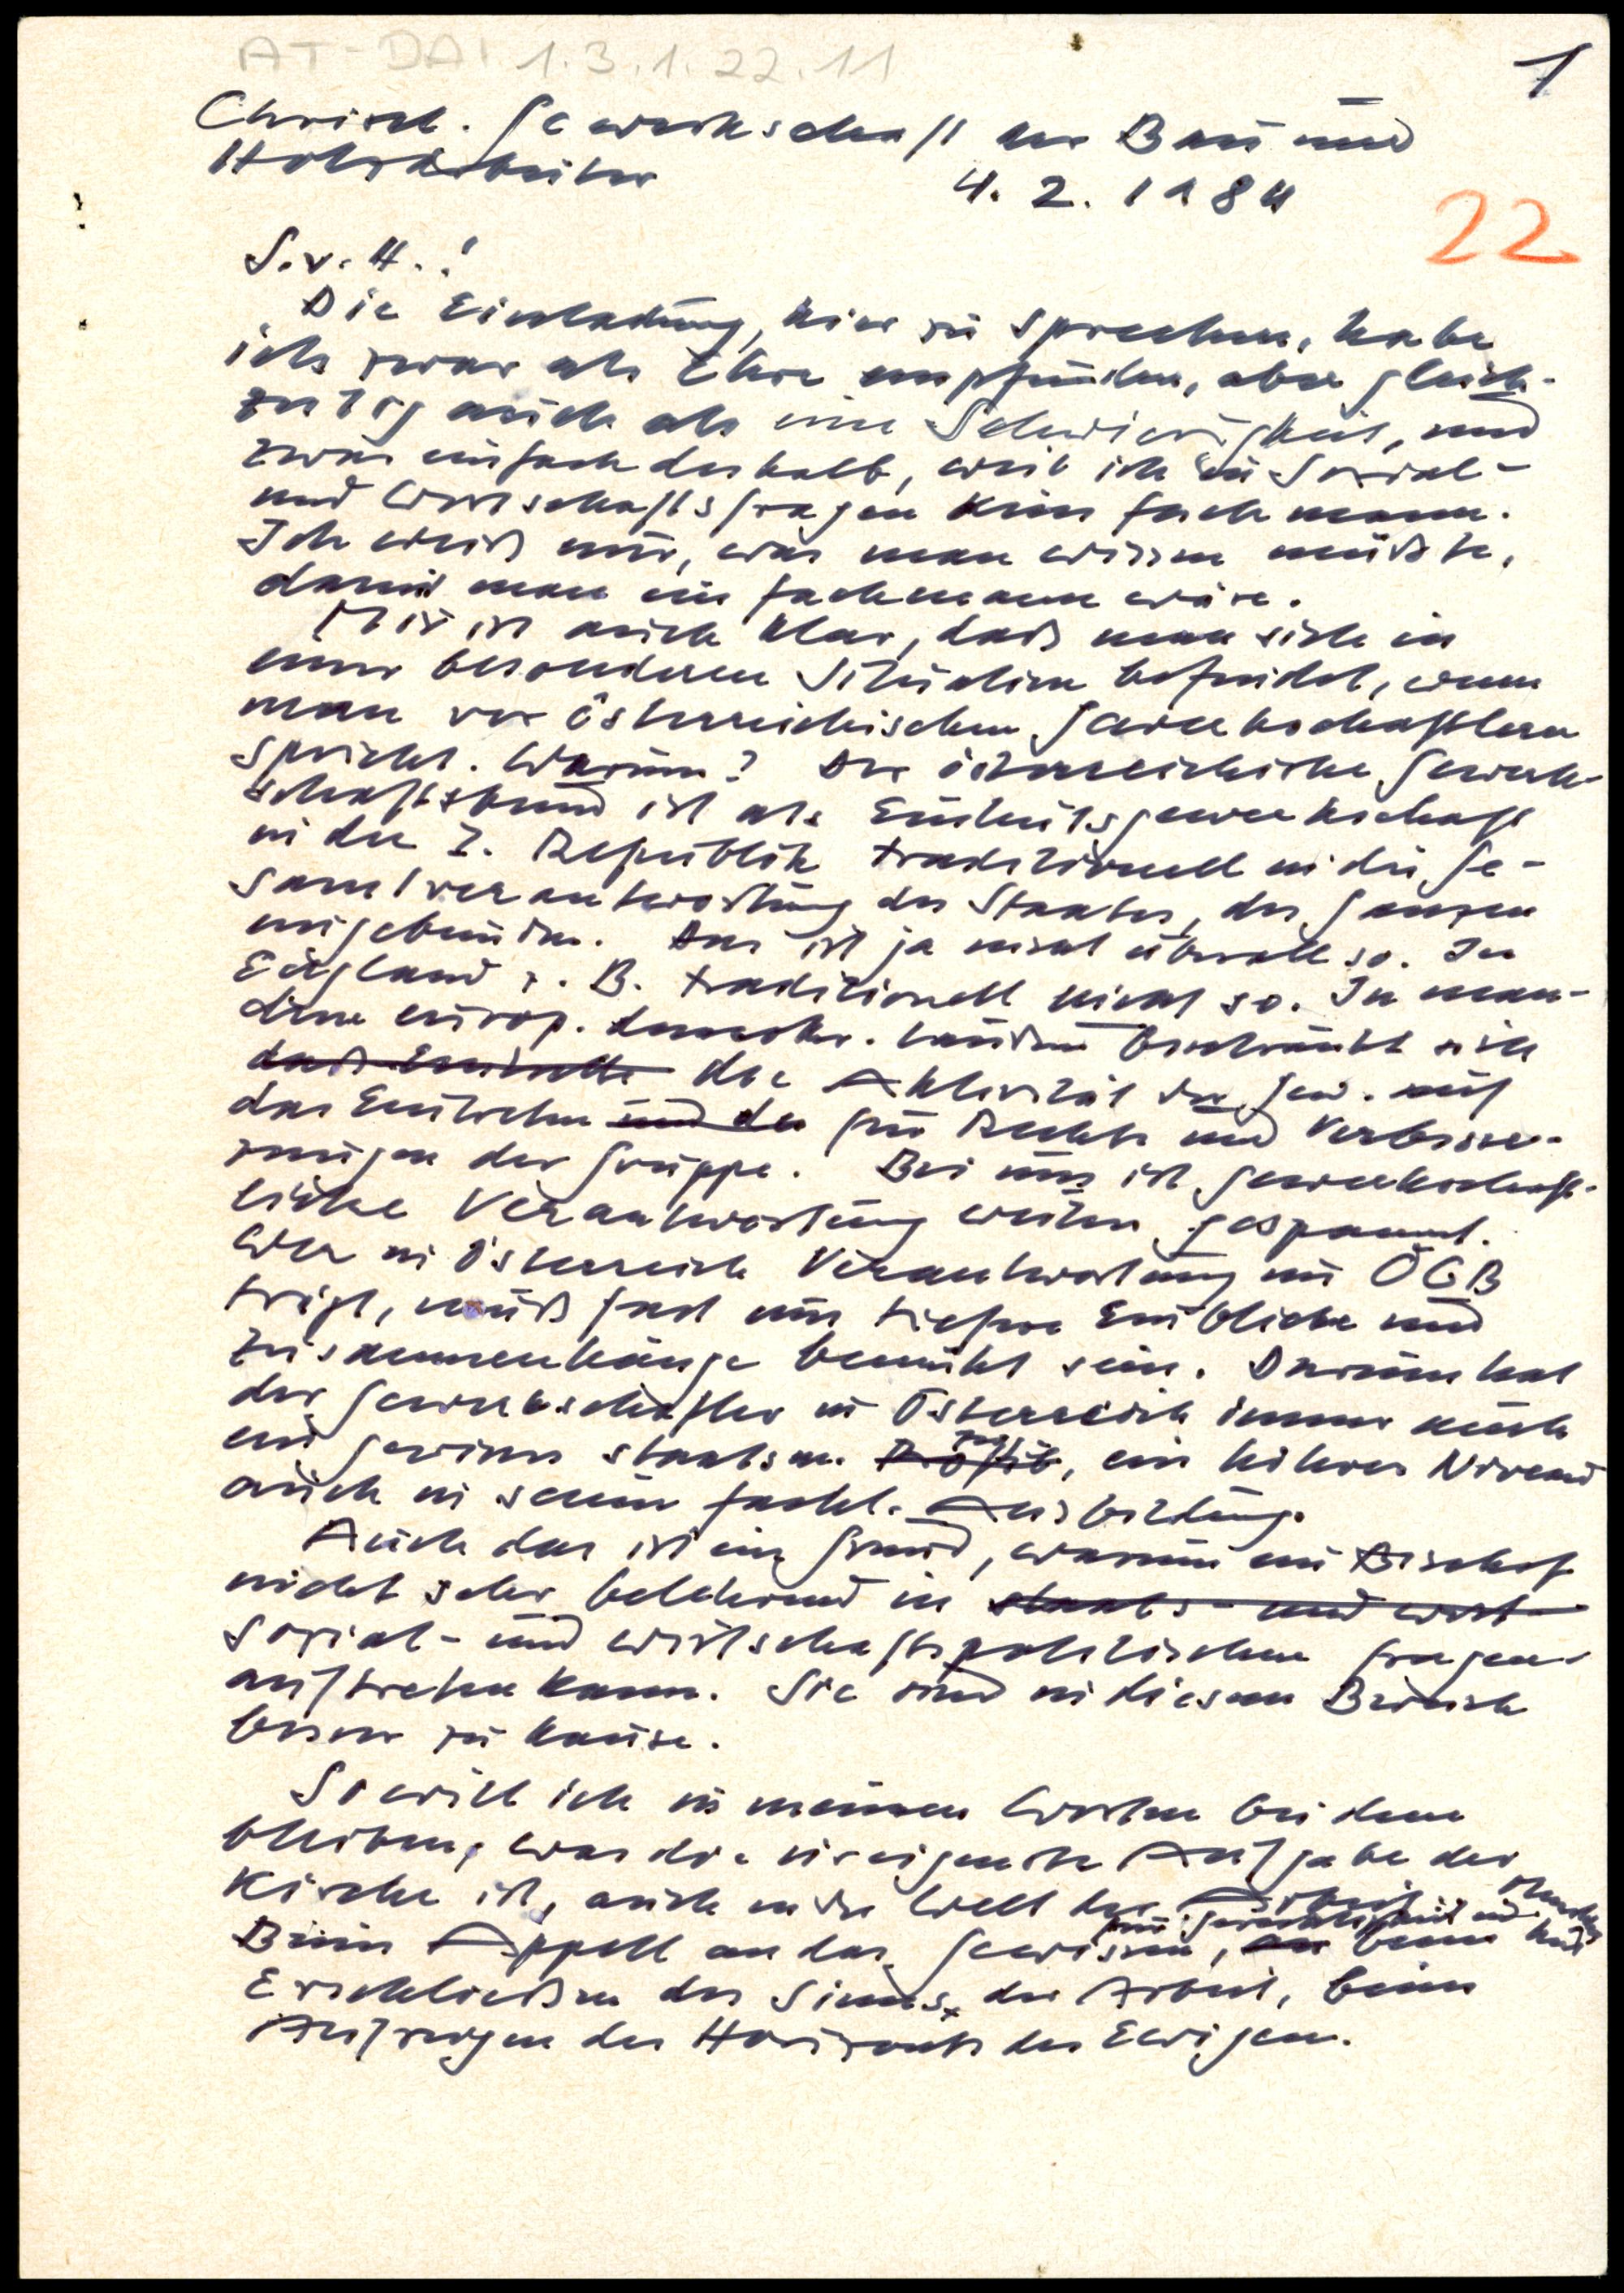 AT-DAI 1.3.1.22.11
1
Christl. Gewerkschaft der Bau und
Holzarbeiter
4. 2. 1984
22
S.v.H..!
Die Einladung, hier zu sprechen, habe
ich zwar als Ehre empfunden, aber gleich-
zeitig auch als eine Schwierigkeit, und
zwar einfach deshalb, weil ich in Sozial-
und Wirtschaftsfragen kein Fachmann.
Ich weiß nur, was man wissen müßte,
damit man ein Fachmann wäre.
Mir ist auch klar, daß man sich in
einer besonderen Situation befindet, wenn
man vor österreichischen Gewerkschaftlern
spricht. Warum? Der österreichische Gewerk-
schaftsbund ist als Einheitsgewerkschaft
in der 2. Republik traditionell in die Ge-
samtverantwortung des Staates, des Ganzen
eingebunden. Das ist ja nicht überall so. In
England z. B. traditionell nicht so. In man-
chen europ. demokr. Ländern beschränkt sich
die Aktivität der Gew. auf
das Eintreten und der für Rechte und Verbesse-
rungen der Gruppe. Bei uns ist gewerkschaft-
liche Verantwortung weiter gespannt.
Wer in Österreich Verantwortung im ÖGB
trägt, muß fast um tiefere Einblicke und
Zusammenhänge bemüht sein. Darum hat
der Gewerkschafter in Österreich immer auch
ein gewisses staatsm. ein höheres Niveau
auch in seiner fachl. Ausbildung.
Auch das ist ein Grund, warum ein Bischof
nicht sehr belehrend in staats- und wirt
sozial- und wirtschaftspolitischen Fragen
auftreten kann. Sie sind in diesem Bereich
besser zu Hause.
So will ich in meinen Worten bei dem
bleiben, was die ureigenste Aufgabe der
Kirche ist, auch in der Welt der Arbeit
Beim Appell an das Gewissen, beim
Erschließen des Sinns der Arbeit, beim
Aufzeigen des Horizonts des Ewigen.